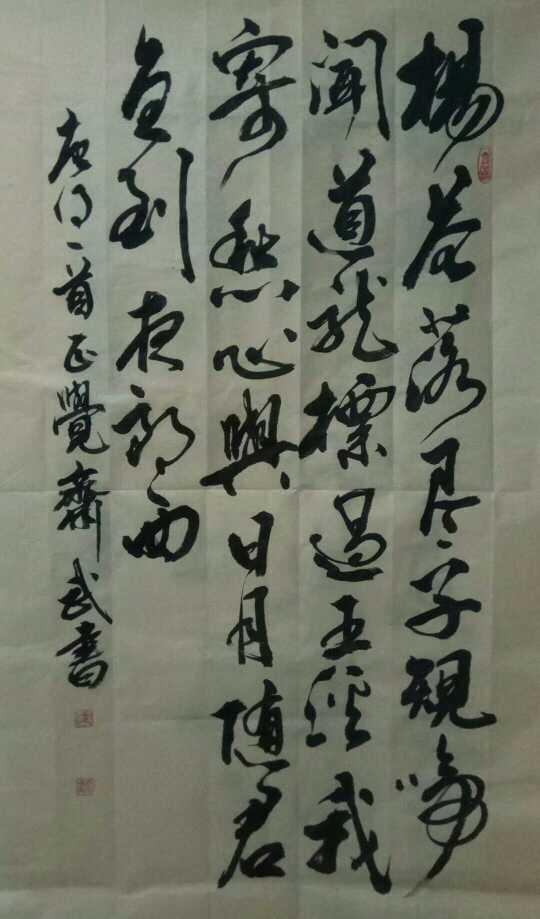 楊花落尽子規啼
聞道龍標過五溪我
寄愁心與日月随君
直到夜郎西
唐詩一首正覺齋武書